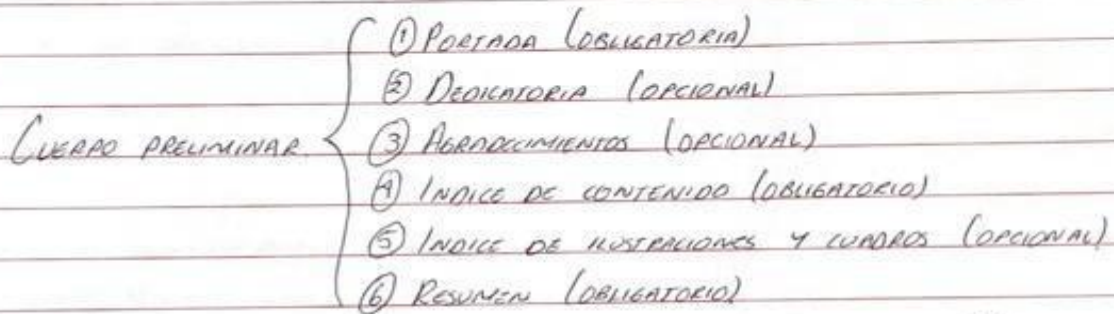 ① PORTADA (OBLIGATORIA)
② DEDICATORIA (OPCIONAL)
CUERPO PRELIMINAR
③ AGRADECIMIENTOS (OPCIONAL)
④ INDICE DE CONTENIDO (OBLIGATORIO)
⑤ INDICE DE ILUSTRACIONES Y CUADROS (OPCIONAL)
⑥ RESUMEN (OBLIGATORIO)